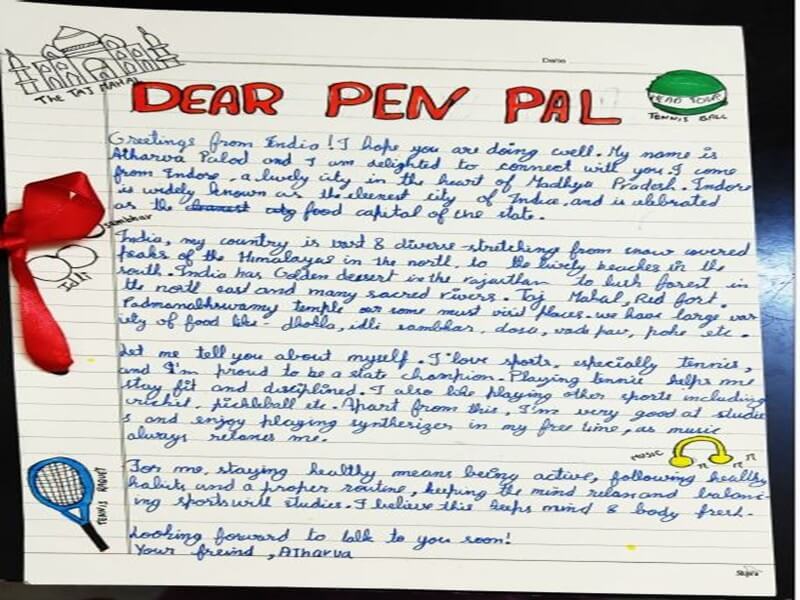 THE TAJ MAHAL
Date
DEAR PEN PAL
HEAD TOUR
TENNIS BALL
Greetings from India! I hope you are doing well. My name is
Atharva Palod and I am delighted to connect with you. I come
from Indore, a lively city in the heart of Madhya Pradesh. Indore
is widely known as the cleanest city of India and is celebrated
as the food capital of the state.
sambhar
Idli
India, my country is vast & diverse stretching from snow covered
peaks of the Himalayas in the north, to the lively beaches in the
south. India has Golden dessert in the rajasthan to lush forest in
the north east and many sacred rivers. Taj Mahal, Red fort,
Padmanabhswamy temple our some must visit places. we have large var
iety of food like - dhokla, idli sambhar, dosa, vada pav, pohe etc.
Let me tell you about myself. I love sports, especially tennis,
and I'm proud to be a state champion. Playing tennis helps me
stay fit and disciplined. I also like playing other sports including
cricket, pickleball etc. Apart from this, I'm very good at studie
s and enjoy playing synthesizer in my free time, as music
always relaxes me.
MUSIC
TENNIS RAQUET
For me, staying healthy means being active, following healthy
habits and a proper routine, keeping the mind relax and balanc-
ing sports with studies. I believe this keeps mind & body fresh.
Looking forward to talk to you soon!
Your freind, Atharva